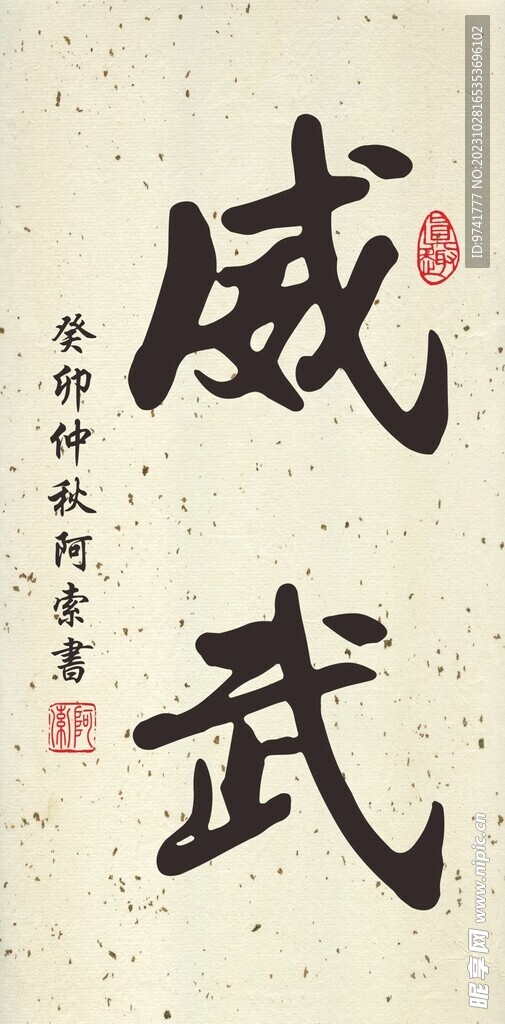 威武
真趣
癸卯仲秋阿索书
阿索
ID:9741777 NO:20231028165353696102
昵享网 www.nipic.cn